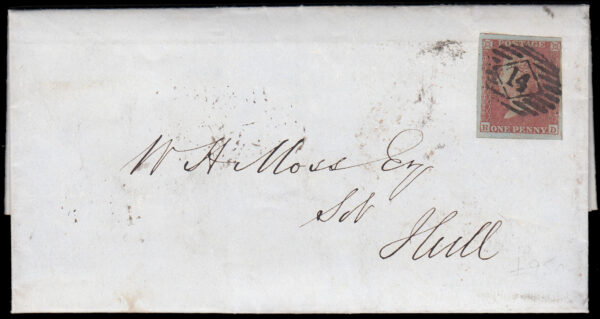 POSTAGE
14
R ONE PENNY D
W H Moss Esq
Hull